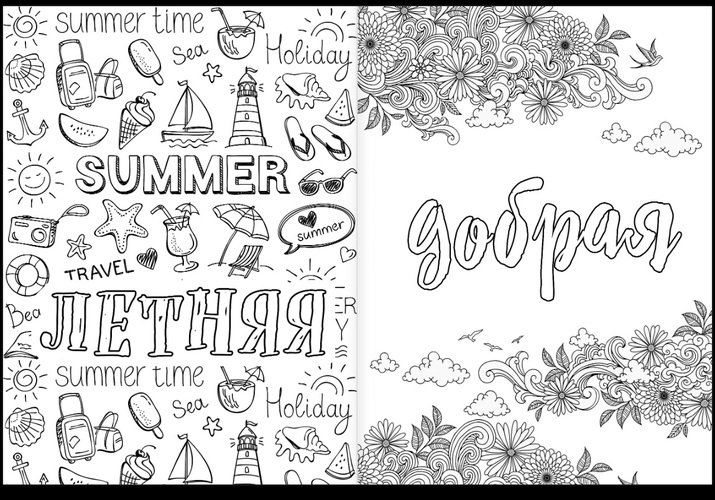 summer time
Sea
Holiday
SUMMER
summer
TRAVEL
ЛЕТНЯЯ
summer time
Sea
Holiday
добрая